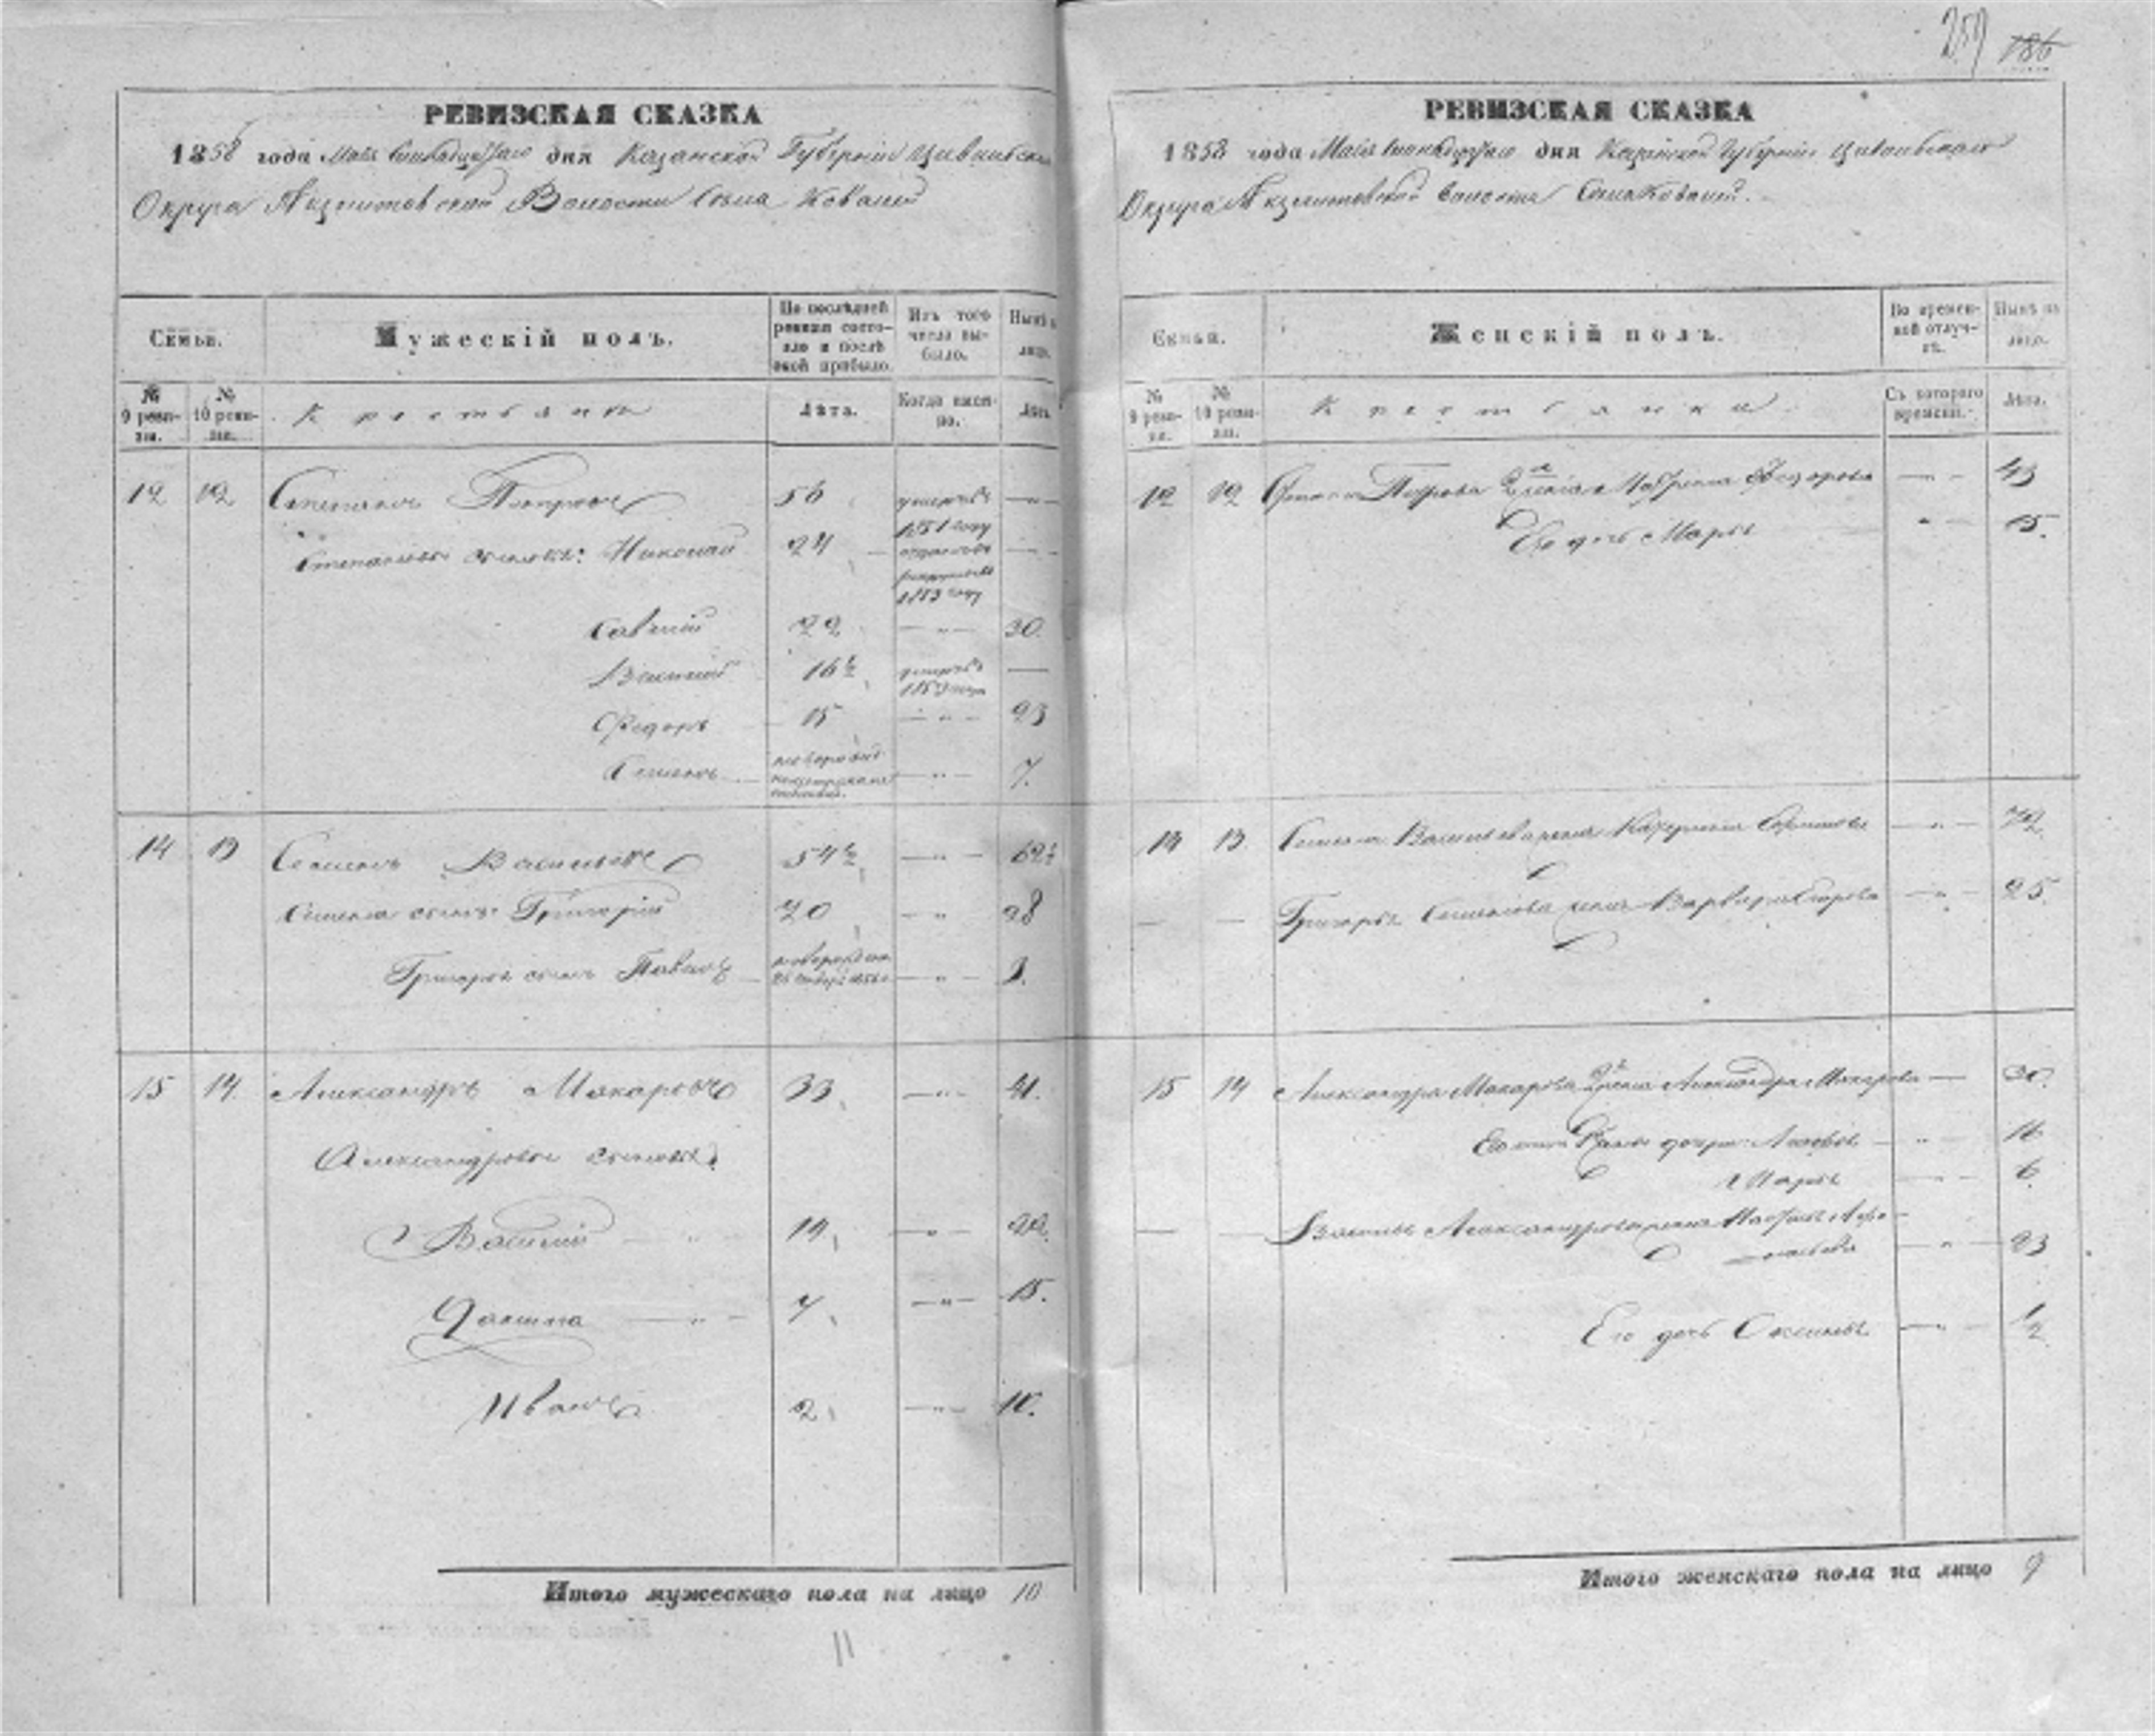 259 186
РЕВИЗСКАЯ СКАЗКА
1858 года Маія дня Казанской Губерніи Цивильскаго
Округа Волости Села Ковалей
Семьи.
Мужескій полъ.
По послѣдней ревизіи состояло и послѣ оной прибыло.
Изъ того числа выбыло.
Нынѣ на лицо.
№ 9 ревизіи.
№ 10 ревизіи.
Крестьяне
Лѣта.
Когда именно.
Лѣта.
12 12 Степанъ Петровъ 56 умеръ въ 1851 году —
Степановы сыновья: Николай 24 отданъ въ рекруты въ 1853 году —
Савелій 22 — " — 30.
Василій 16½ умеръ въ —
Федоръ 15 — " — 23
Семенъ — " — 7.
14 13 Семенъ Васильевъ 54½ — " — 62½
Семена сынъ: Григорій 20 — " 28
Григорья сынъ Павелъ новорожден — " — 2.
15 14 Александръ Макаровъ 33 — " — 41.
Александровы сыновья:
Василій — " — 14 — " — 22.
— " — 7 — " — 15.
Иванъ 2 — " — 10.
Итого мужескаго пола на лицо 10
11
РЕВИЗСКАЯ СКАЗКА
1858 года Маія дня Казанской Губерніи Цивильскаго
Округа Волости Села Ковалей.
Семьи.
Женскій полъ.
Во временной отлучкѣ.
Нынѣ на лицо.
№ 9 ревизіи.
№ 10 ревизіи.
Крестьянки
Съ котораго времени.
Лѣта.
12 12 Степана Петрова 2я жена Матрена Федорова — " — 43
Его дочь Марья " — 15.
14 13. Семена Васильева жена Катерина — " — 72.
— — Григорья Семенова жена Варвара Егорова — " — 25.
15 14 Александра Макарова 2я жена Александра Макарова — 30.
Его дочери: — " — 16
Марья — " — 6.
— — Василья Александрова жена Настасья Афа-
насьева — " — 23
Его дочь Оксинья — " — ½
Итого женскаго пола на лицо 9